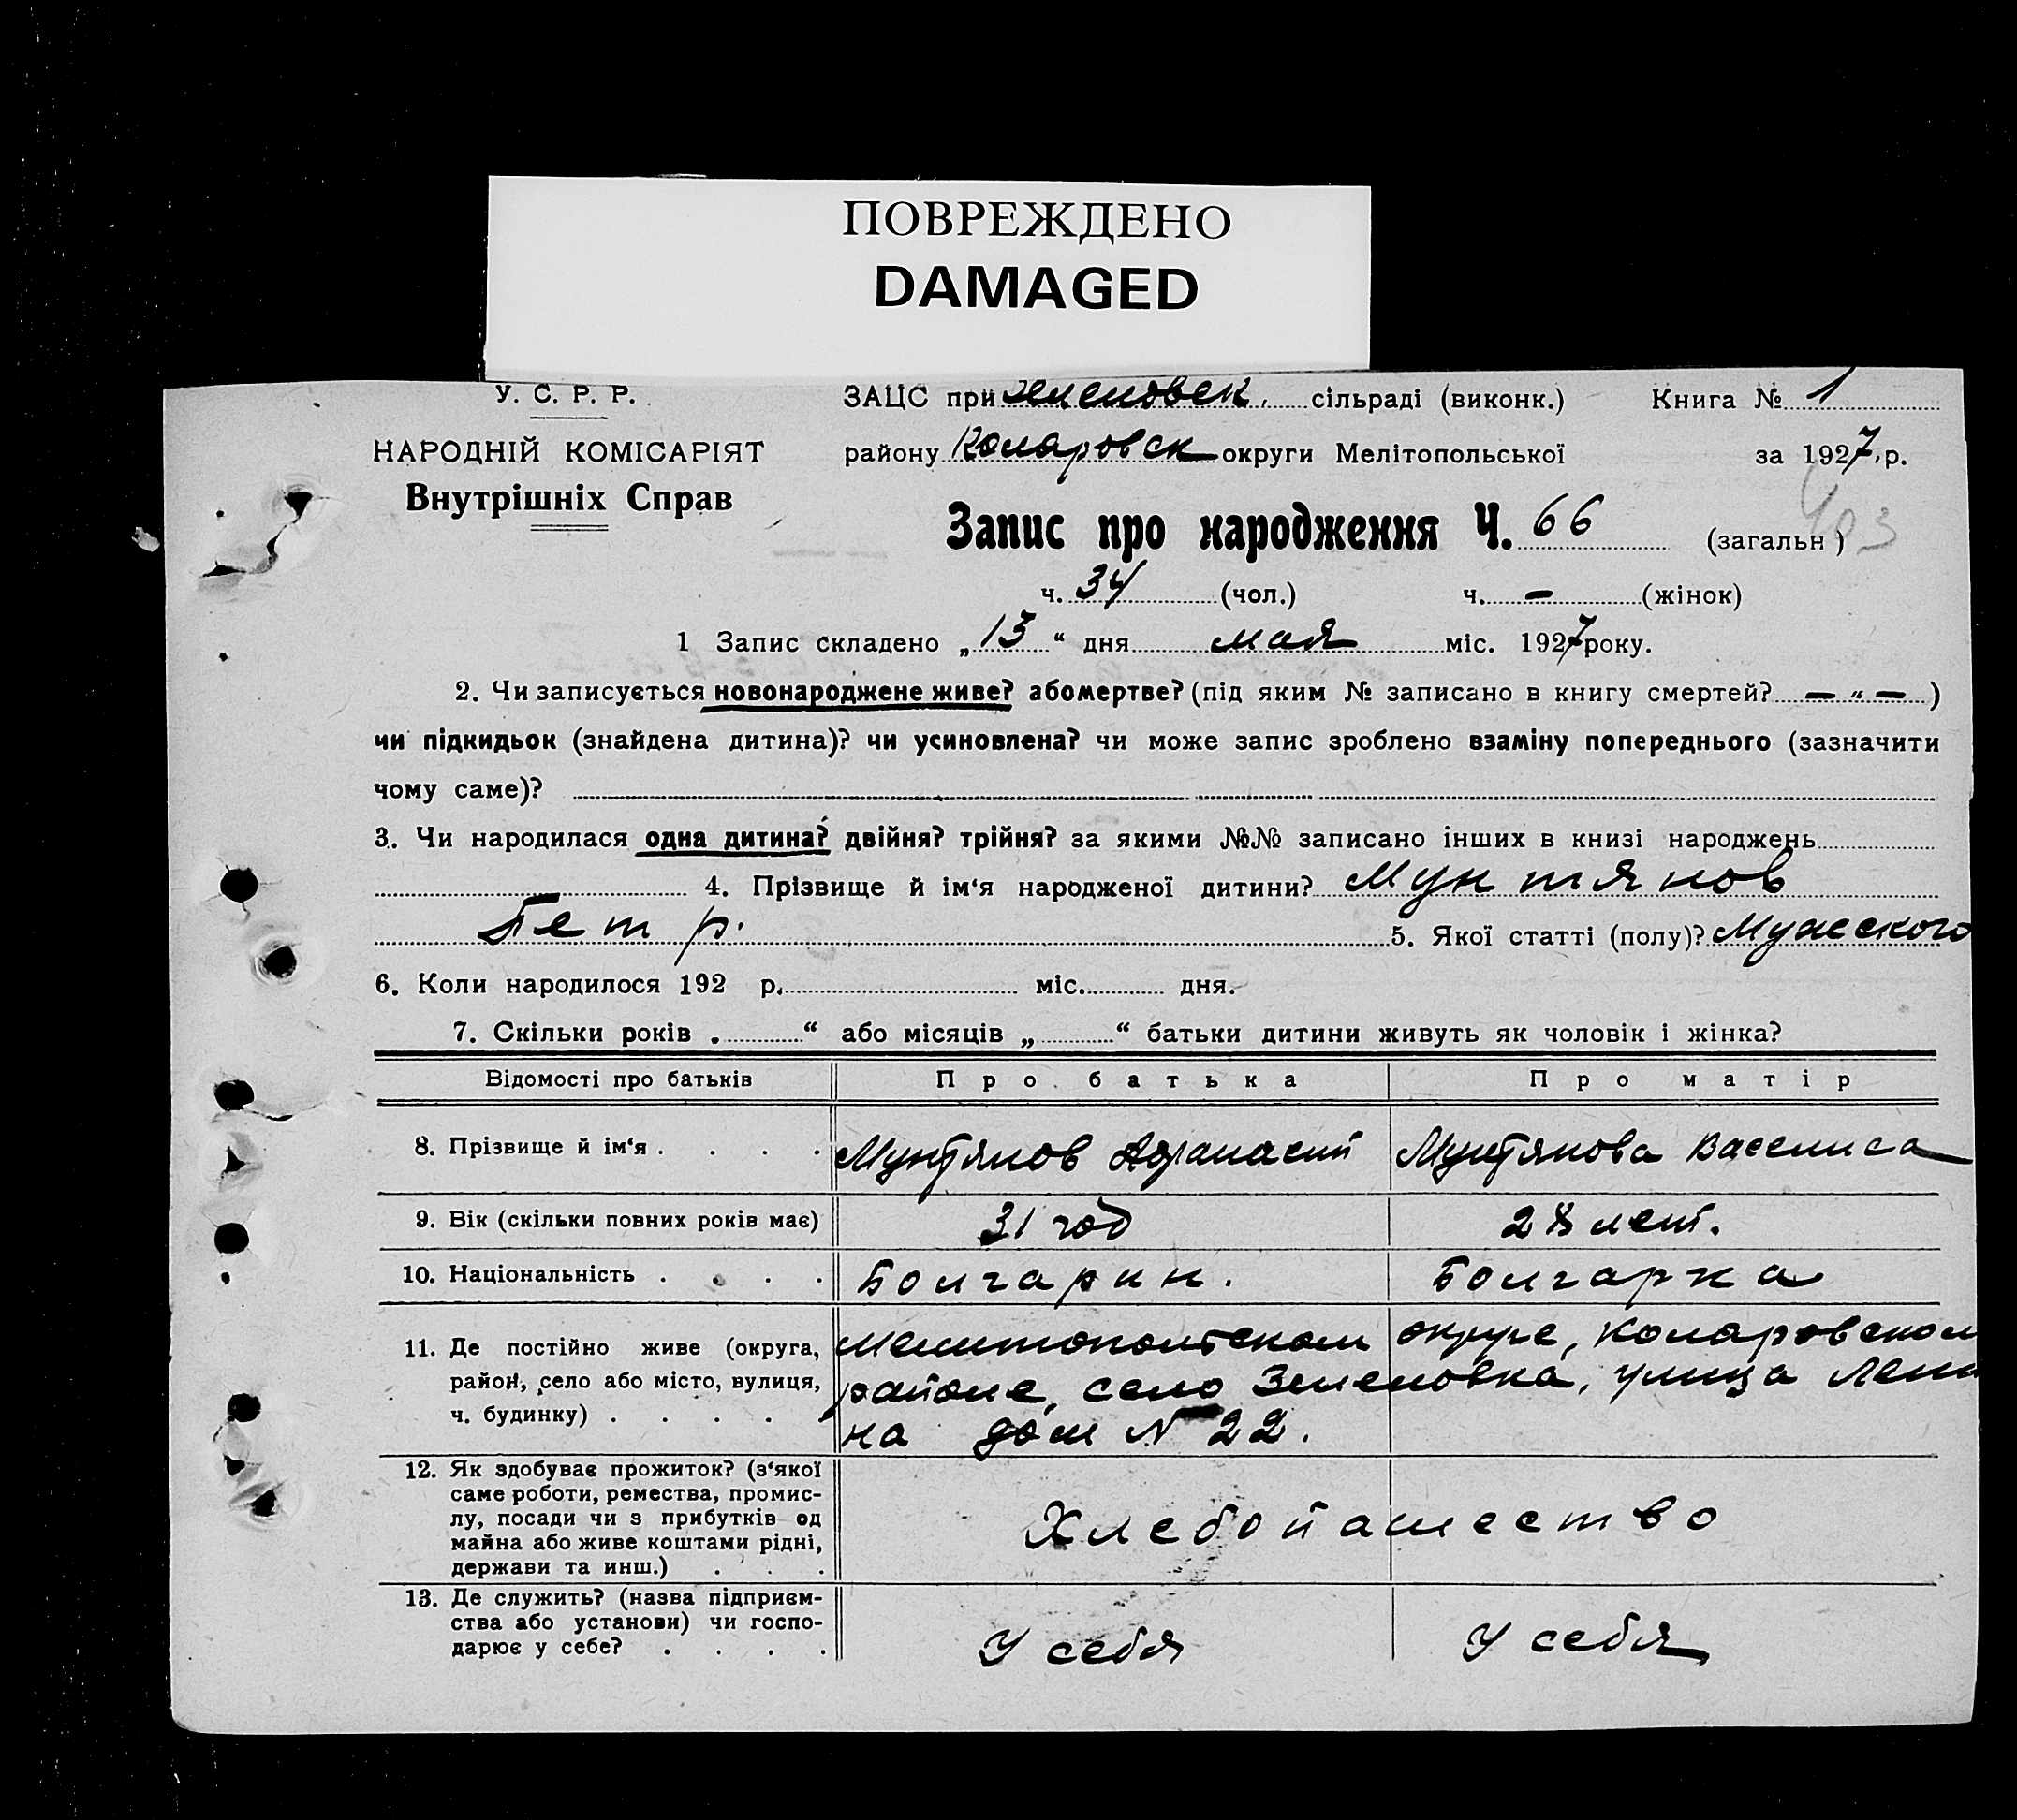 ПОВРЕЖДЕНО
DAMAGED
У. С. Р. Р.
НАРОДНІЙ КОМІСАРІЯТ
Внутрішніх Справ
ЗАЦС при Зеленовск. сільраді (виконк.) Книга № 1
району Коларовск округи Мелітопольської за 1927 р.
Запис про народження Ч. 66 (загальн)
ч. 34 (чол.) ч. — (жінок)
1 Запис складено „13“ дня мая міс. 1927 року.
2. Чи записується новонароджене живе? або мертве? (під яким № записано в книгу смертей? — „ —)
чи підкидьок (знайдена дитина)? чи усиновлена? чи може запис зроблено взаміну попереднього (зазначити
чому саме)?
3. Чи народилася одна дитина? двійня? трійня? за якими №№ записано інших в книзі народжень
4. Прізвище й ім‘я народженої дитини? Мунтянов
Петр. 5. Якої статті (полу)? Мужского
6. Коли народилося 192 р. міс. дня.
7. Скільки років „ “ або місяців „ “ батьки дитини живуть як чоловік і жінка?
Відомості про батьків Про батька Про матір
8. Прізвище й ім‘я . . . . Мунтянов Афанасий Мунтянова Васелиса
9. Вік (скільки повних років має) 31 год 28 лет.
10. Національність . . . . Болгарин. Болгарка
11. Де постійно живе (округа,
район, село або місто, вулиця,
ч. будинку) . . . .
Мелитопольском округе, Коларовском
районе, село Зеленовка, улица Лени
на дом N 22.
12. Як здобуває прожиток? (з‘якої
саме роботи, ремества, промис-
лу, посади чи з прибутків од
майна або живе коштами рідні,
держави та инш.) . . .
Хлебопашество
13. Де служить? (назва підприєм-
ства або установи) чи госпо-
дарює у себе? . . . .
У себя У себя